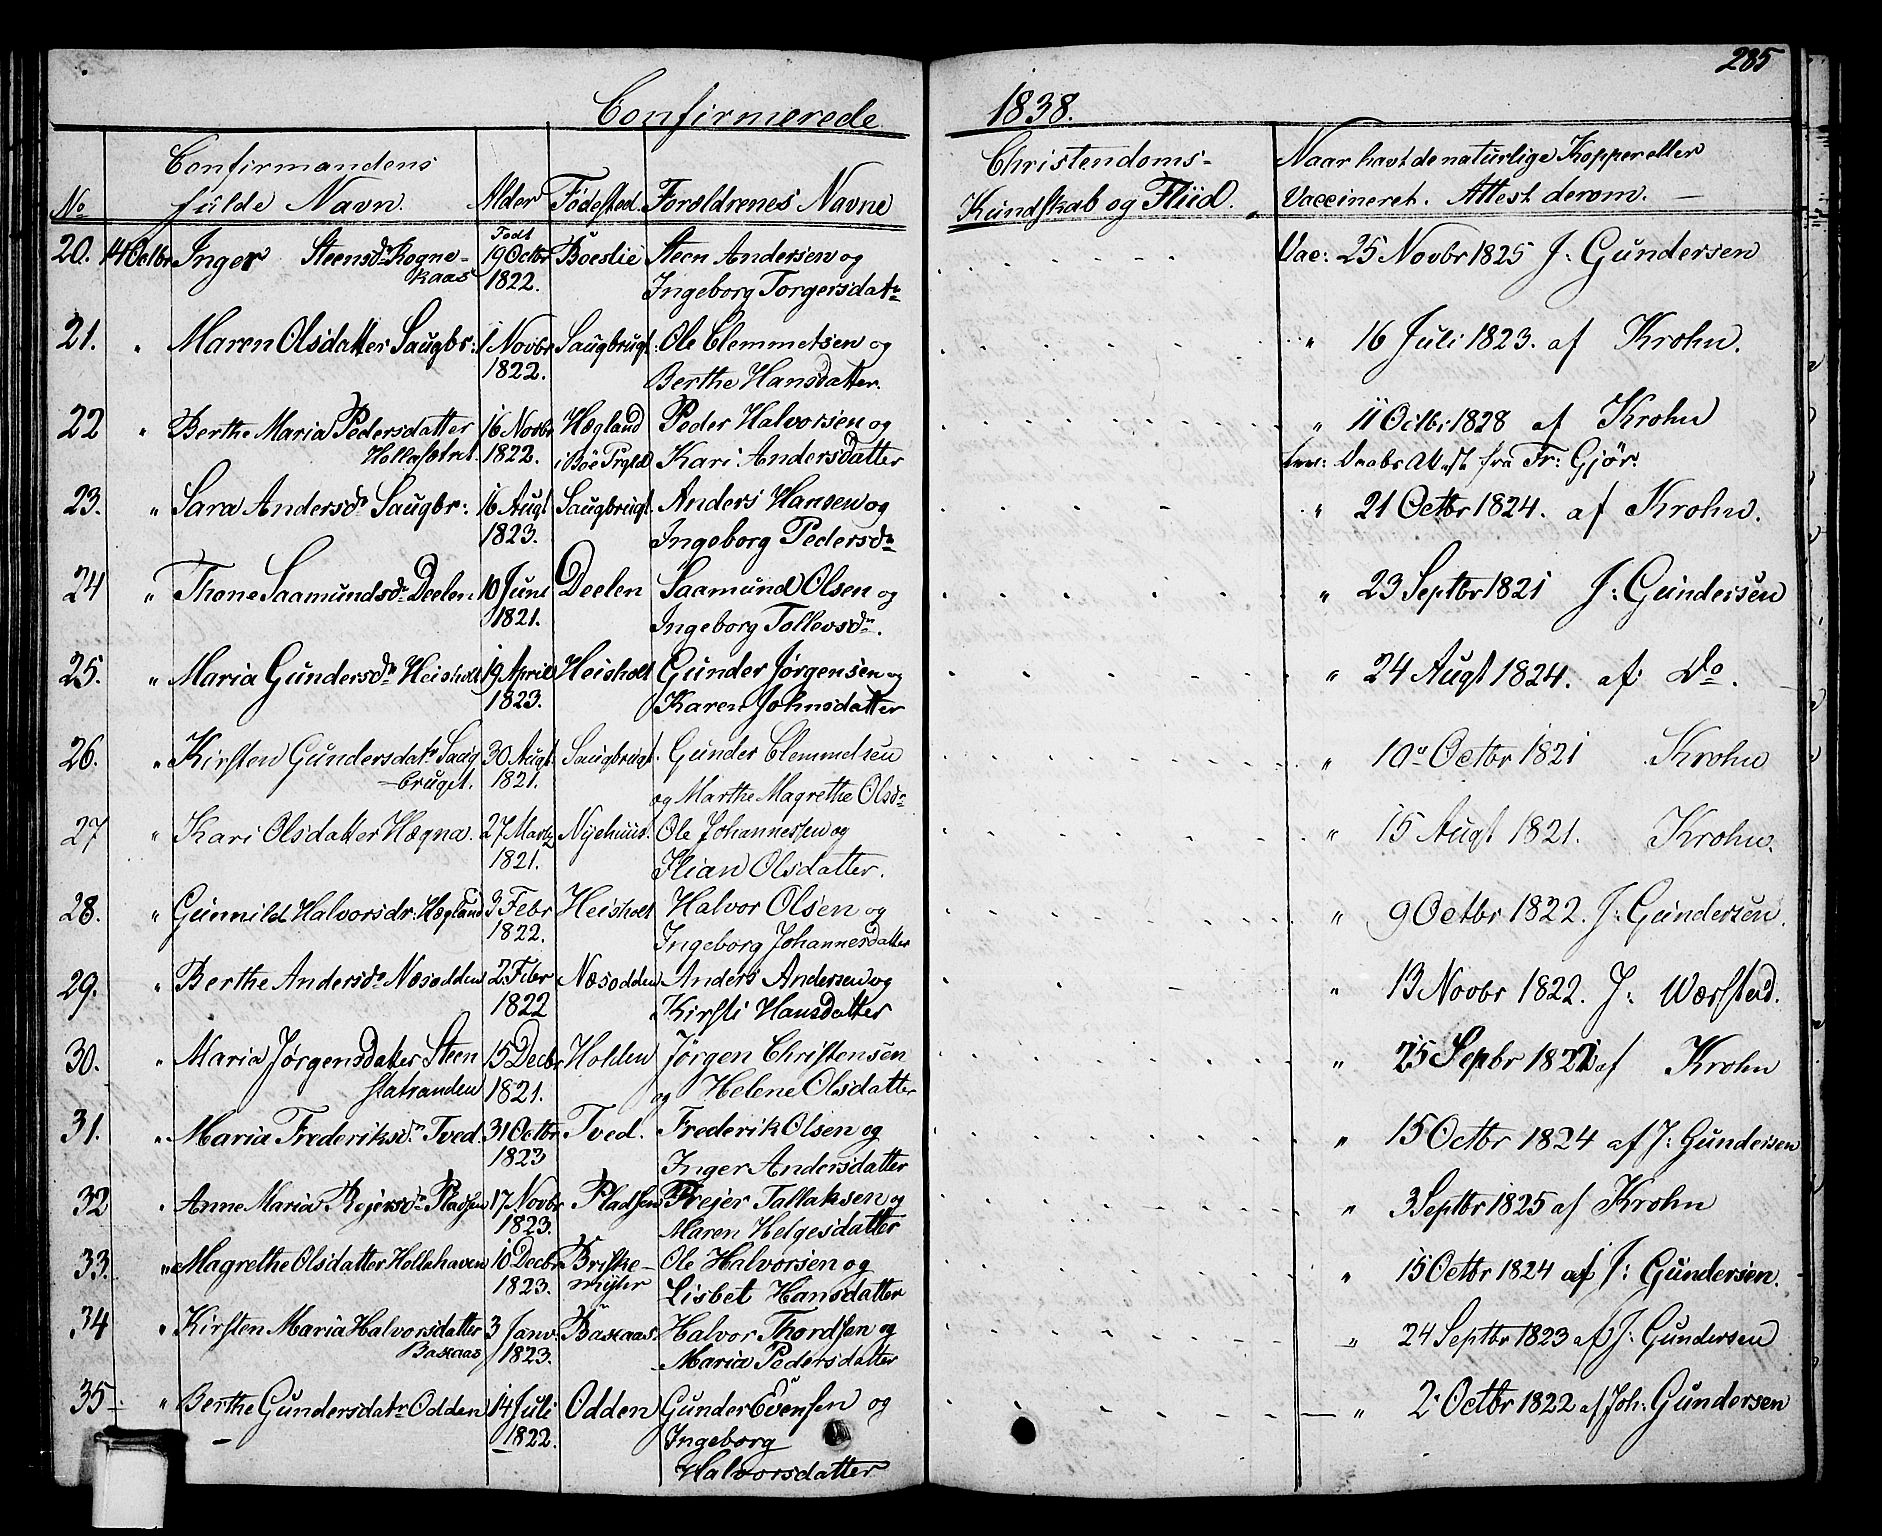 285
Confirmerede 1838.
No
Confirmandens fulde Navn.
Alder
Fødested.
Forældrenes Navne
Christendoms-
Kundskab og Fliid.
Naar havt de naturlige Kopper eller
Vaccineret. Attest derom.
20. 14 Octbr Inger Steensdr Rogne- Født 19 Octbr Böeslie Steen Andersen og Vac: 25 Novbr 1825 J: Gundersen
kaas 1822. Ingeborg Torgersdatr
21. " Maren Olsdatter Saugbr: 1 Novbr Saugbrugt. Ole Clemmetsen og " 16 Juli 1823. af Krohn.
1822. Berthe Hansdatter.
22 " Berthe Maria Pedersdatter 16 Novbr Hægland Peder Halvorsen og " 11 Octbr 1828 af Krohn
Hollasetret. 1822. i Böe Prgld Kari Andersdatter Daabs Attest fra Fr: Gjør:
23. " Sara Andersdr Saugbr: 16 Augt Saugbrugt. Anders Hansen og " 21 Octbr 1824. af Krohn.
1823. Ingeborg Pedersdr
24 " Thone Saamundsdr Deelen 10 Juni Deelen Saamund Olsen og " 23 Septbr 1821 J: Gundersen
1821. Ingeborg Tollevsdr.
25. " Maria Gundersdr Heisholt 19 April Heisholt Gunder Jørgensen og " 24 Augt 1824. af Do.
1823. Karen Johnsdatter
26. " Kirsten Gundersdatr Saug 30 Augt. Saugbrugt. Gunder Clemmetsen " 10 Octbr 1821 Krohn
bruget. 1821. og Marthe Magrethe Olsdr
27 " Kari Olsdatter Hægna. 27 Martz Nyehuus. Ole Johannessen og " 15 Augt 1821. Krohn.
1821. Ilian Olsdatter.
28. " Gunnild Halvorsdr: Hægland 3 Febr Heisholt Halvor Olsen og " 9 Octbr 1822. J: Gundersen.
1822. Ingeborg Johannesdatter
29. " Berthe Andersdr Næsodden 2 Febr Næsodden Anders Andersen og " 13 Novbr 1822. J: Wærsted.
1822 Kirsti Hansdatter
30. " Maria Jørgensdatter Steen 15 Decbr Holden Jörgen Christensen " 25 Sepbr 1822 af Krohn
statranden 1821. og Helene Olsdatter
31. " Maria Frederiksdr Tved. 31 Octbr Tved. Frederik Olsen og " 15 Octbr 1824 af J: Gundersen
1823 Inger Andersdatter
32 " Anne Maria Rejersdr Pladsen 17 Novbr Pladsen Rejer Tallaksen og " 3 Septbr 1825 af Krohn
1823. Maren Helgesdatter
33. " Magrethe Olsdatter Hollahaven 10 Decbr Briske- Ole Halvorsen og " 15 Octbr 1824 af J: Gundersen.
1823. myhr Lisbet Hansdatter
34 " Kirsten Maria Halvorsdatter 3 Janv. Baskaas. Halvor Thordsen og " 24 Septbr 1823 af J: Gundersen
Baskaas 1823. Maria Pedersdatter
35 " Berthe Gundersdatr Odden 14 Juli Odden Gunder Evensen og " 2 Octbr 1822 af Joh: Gundersen
1822. Ingeborg
Halvorsdatter